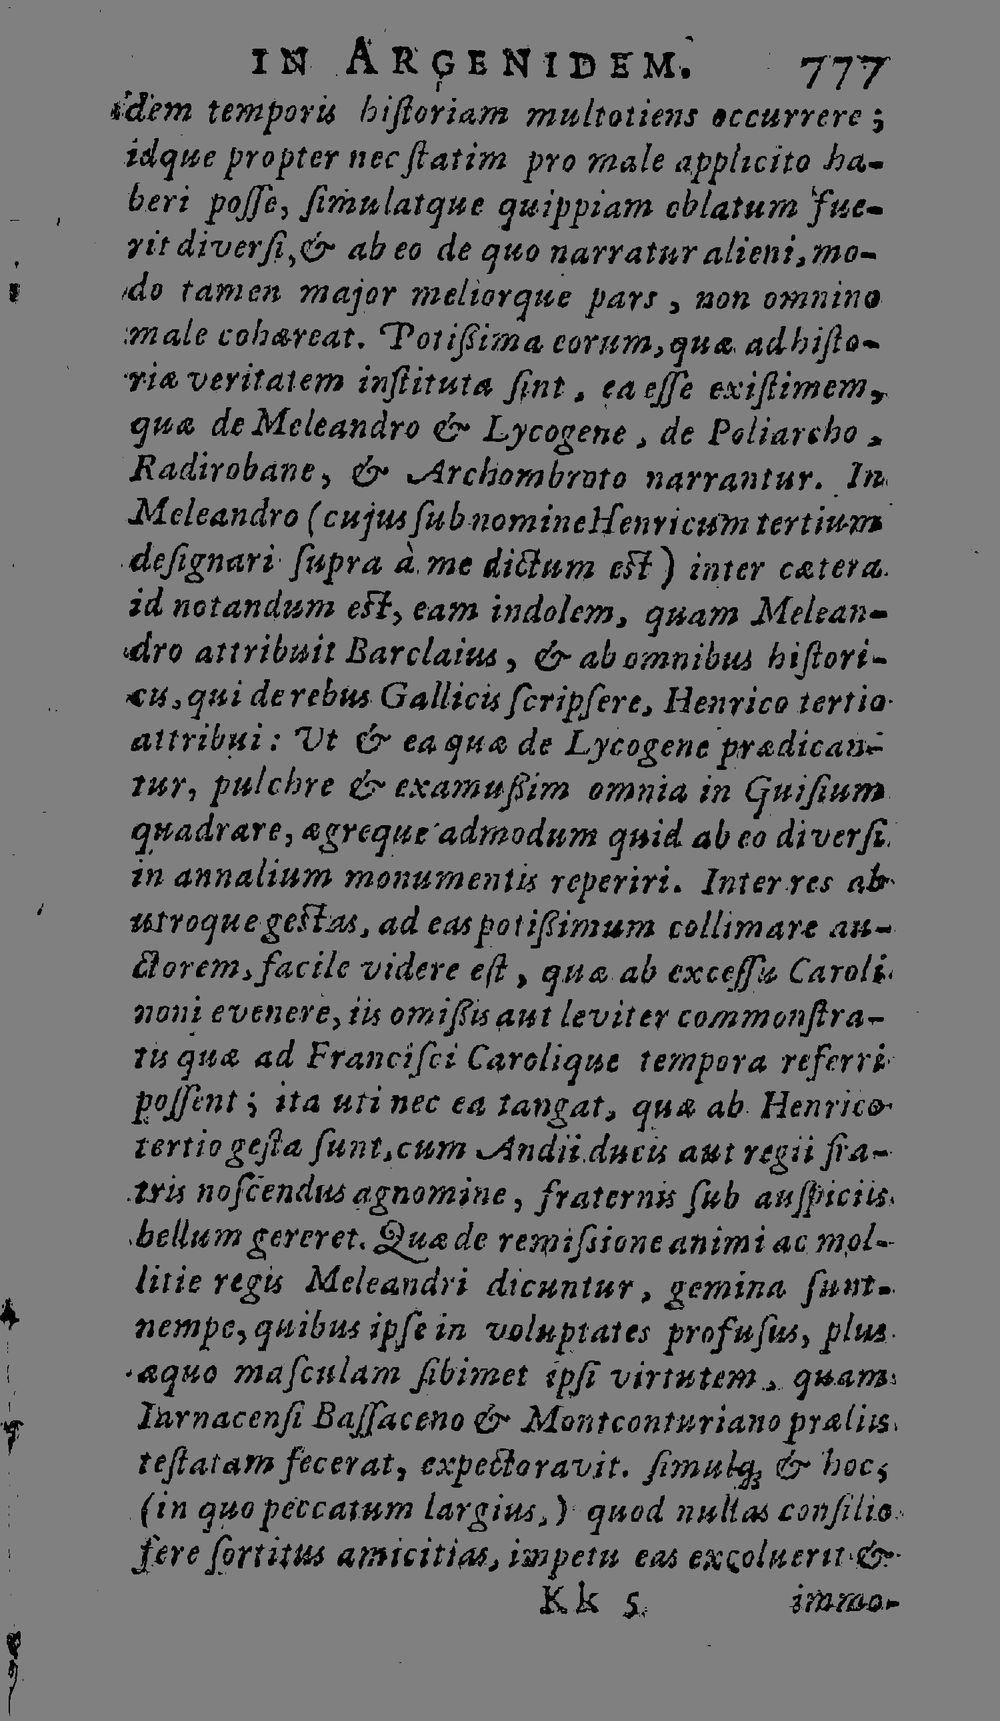 IN ARGENIDEM. 777
dem temporis hiſtoriam multotiens occurrere;
idque propter nec ſtatim pro male applicito ha-
beri poſſe, ſimulatque quippiam oblatum fue-
rit diverſi, & ab eo de quo narratur alieni, mo-
do tamen major meliorque pars, non omnino
male cohæreat. Potiſſima eorum, quæ ad hiſto-
riæ veritatem inſtituta ſint, ea eſſe exiſtimem,
quæ de Meleandro & Lycogene, de Poliarcho,
Radirobane, & Archombroto narrantur. In
Meleandro (cujus ſub nomine Henricum tertium
deſignari ſupra à me dictum eſt) inter cætera
id notandum eſt, eam indolem, quam Melean-
dro attribuit Barclaius, & ab omnibus hiſtori-
cis, qui de rebus Gallicis ſcripſere, Henrico tertio
attribui: Ut & ea quæ de Lycogene prædican-
tur, pulchre & examuſſim omnia in Guiſium
quadrare, ægreque admodum quid ab eo diverſi
in annalium monumentis reperiri. Inter res ab
utroque geſtas, ad eas potiſſimum collimare au-
ctorem, facile videre eſt, quæ ab exceſſu Caroli
noni evenere, iis omiſſis aut leviter commonſtra-
tis quæ ad Franciſci Carolique tempora referri
poſſent; ita uti nec ea tangat, quæ ab Henrico
tertio geſta ſunt, cum Andii ducis aut regii fra-
tris noſcendus agnomine, fraternis ſub auſpiciis
bellum gereret. Quæ de remiſſione animi ac mol-
litie regis Meleandri dicuntur, gemina ſunt.
nempe, quibus ipſe in voluptates profuſus, plus
æquo maſculam ſibimet ipſi virtutem, quam
Iarnacenſi Baſſaceno & Montconturiano præliis
teſtatam fecerat, expectoravit. ſimulq; & hoc,
(in quo peccatum largius,) quod nullas conſilio
fere ſortitus amicitias, impetu eas excoluerit &
Kk 5 immo-